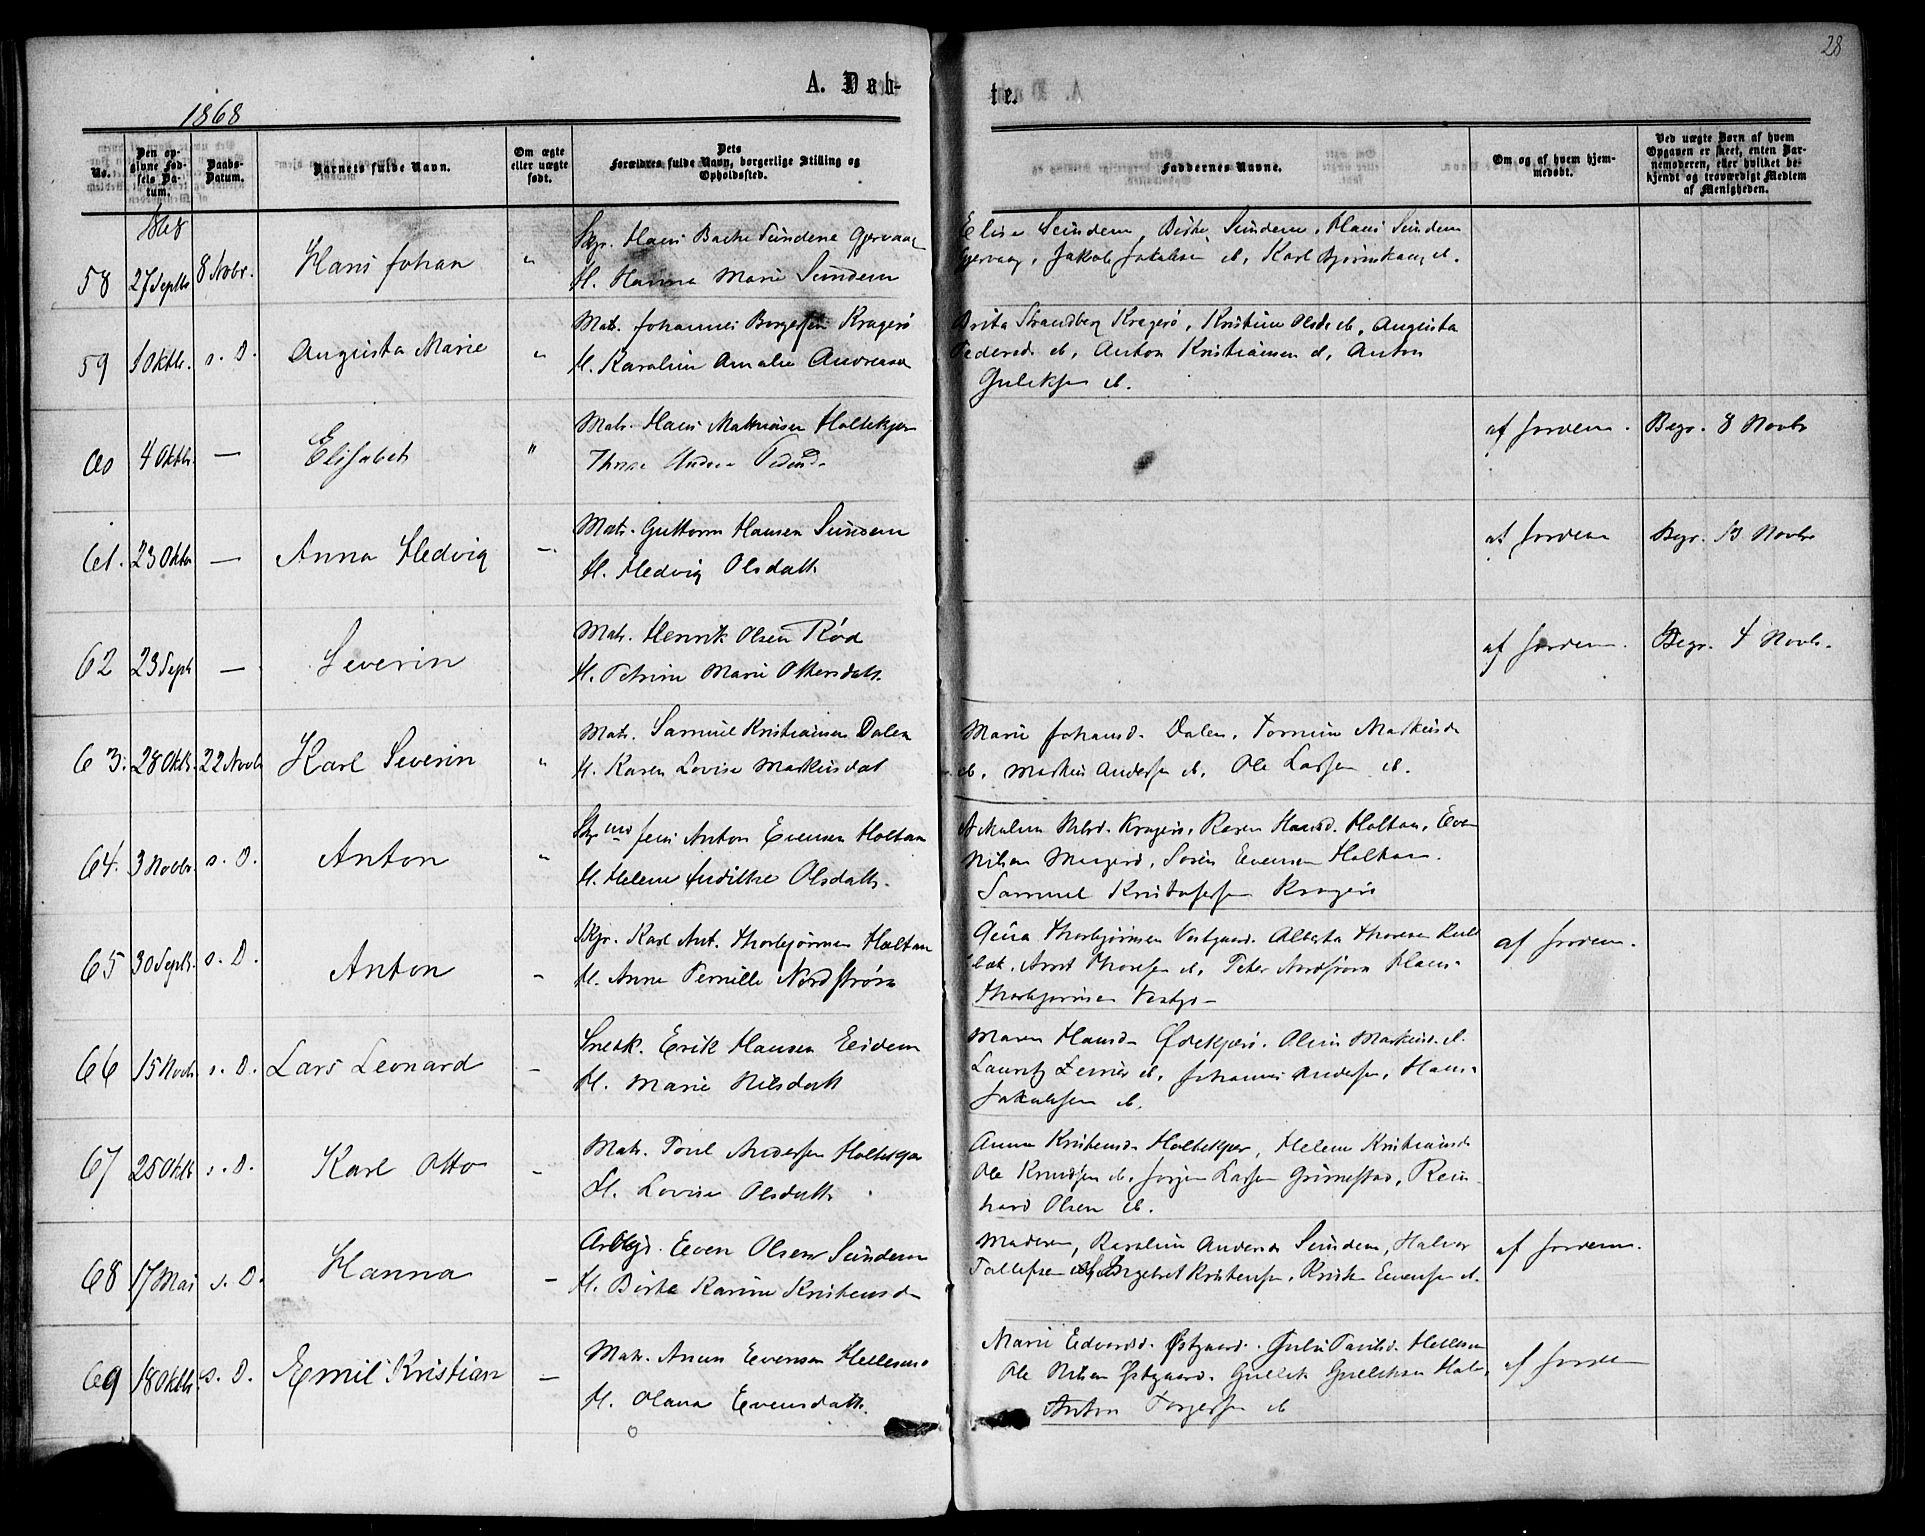 28
A. Døb-
te.
1868
No.
Den opgivne Fødsels Datum.
Daabs-Datum.
Barnets fulde Navn.
Om ægte eller uægte født.
Dets Forældres fulde Navn, borgerlige Stilling og Opholdssted.
Faddernes Navne.
Om og af hvem hjemmedøbt.
Ved uægte Børn af hvem Opgaven er skeet, enten Barnemoderen, eller hvilket bekjendt og troværdigt Medlem af Menigheden.
1868
58 27 Septbr 8 Novbr. Hans Johan "
Skpr. Hans Bache Sundene Gjervaag
H. Hanna Marie Sundem
Elise Sundem, Birte Sundem, Hans Sundem
Gjervaag, Jakob Jakobsen ib,
59 1 Oktbr. s. D. Augusta Marie "
Matr. Johannes Borgersen Kragerø
H. Karoline Amalie
Brita Strandberg Kragerø, Kristine Olsd. ib, Augusta
Pedersd. ib, Anton Kristiansen ib, Anton
Guliksen ib.
60 4 Oktbr. — Elisabet "
Matr. Hans Mathisen Holtekjer
af Jordem.
Begr. 8 Novbr
61. 23 Oktbr — Anna Hedvig —.
Matr. Guttorm Hansen Sundem
H. Hedvig Olsdatt.
af Jordem
Begr. 13 Novbr
62 23 Septr — Severin
Matr. Henrik Olsen Rød
H. Petrine Marie Ottersdatt.
af Jordem.
Begr. 4 Novbr.
63. 28 Oktb. 22 Novbr Karl Severin "
Matr. Samuel Kristiansen Dalen
H. Karen Lovise Markusdat
Marie Johansd. Dalen,
ib, Markus Andersen ib, Ole Larsen ib.
64. 3 Novbr. s. D. Anton "
Jens Anton Evensen Holtan
H. Helene Olsdatt.
Kragerø, Karen Hansd. Holtan, Even
Nilsen Søren Evensen Holtan.
Samuel Kristofersen Kragerø
65 30 Septb. s. D. Anton -
Skpr. Karl Ant. Thorbjørnsen Holtan
H. Anne Pernille Nordstrøm
Gina Thorbjørnsen Vestgaard. Alberta Thoresen
Arnt Thoresen ib, Peter Nordstrøm Klaus
Thorbjørnsen Vestgd
af Jordem.
66 15 Novb. s. D. Lars Leonard -
Snedk. Erik Hansen Eidem
H. Marie Nilsdatt
Maren Hansd. Markusd. ib.
Lauritz ib, Johannes Andersen, Hans
Jakobsen ib.
67 25 Oktb s. D. Karl Otto -
Matr. Poul Andersen Holtekjer
H. Lovise Olsdatt.
Anne Kristensd. Holtekjer, Helene Kristiansd
Ole Knudsen ib, Jørgen Larsen Grimestad, Rein-
hard Olsen ib.
68 17 Mai s. D. Hanna —
Arbkjr. Even Olsen Sundem
H. Birte Karine Kristensd
Moderen, Karoline Andersd Sundem, Halvor
Tollefsen ib, Ingebret Kristensen, Kristen Evensen ib.
af Jordem.
69 18 Oktbr. s. D. Emil Kristian —
Matr. Evensen
H. Olava Evensdatt.
Marie Edvardsd. Østgaard.
Ole Nilsen Østgaard. Gullik Gulliksen
Anton Torgersen ib
af Jordem